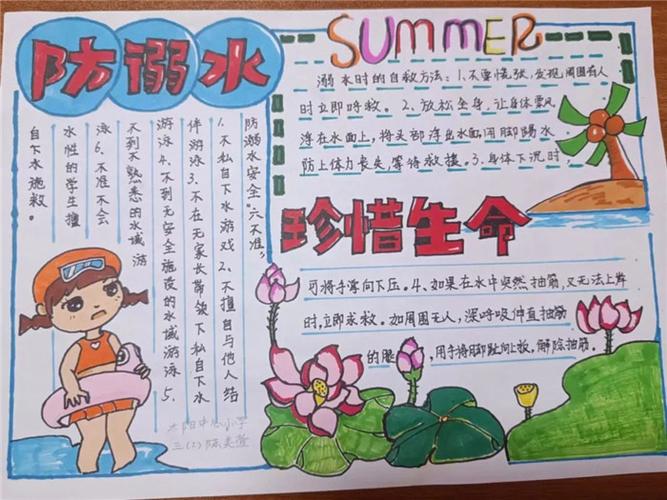 防溺水
SUMMER
防溺水安全“六不准”
1.不私自下水游戏 2、不擅自与他人结
伴游泳3、不在无家长带领下私自下水
游泳4、不到无安全施设的水域游泳5.
不到不熟悉的水域游
泳6.不准不会
水性的学生擅
自下水施救。
溺水时的自救方法:1、不要慌张,发现周围有人
时立即呼救。2、放松全身,让身体飘
浮在水面上,将头部浮出水面用脚踢水
防上体力丧失,等待救援。3.身体下沉时,
珍惜生命
可将手掌向下压。4.如果在水中突然抽筋,又无法上岸
时,立即求救。如周围无人,深呼吸伸直抽筋
的腿,用手将脚趾向上扳,解除抽筋。
太阳中心小学
三(2)陈